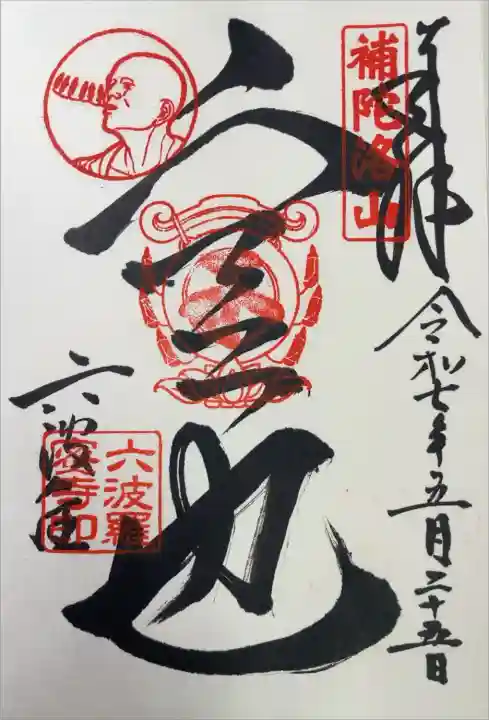 奉拝
補陀洛山
令和七年五月二十五日
空也
六波羅蜜寺
六波羅
蜜寺印